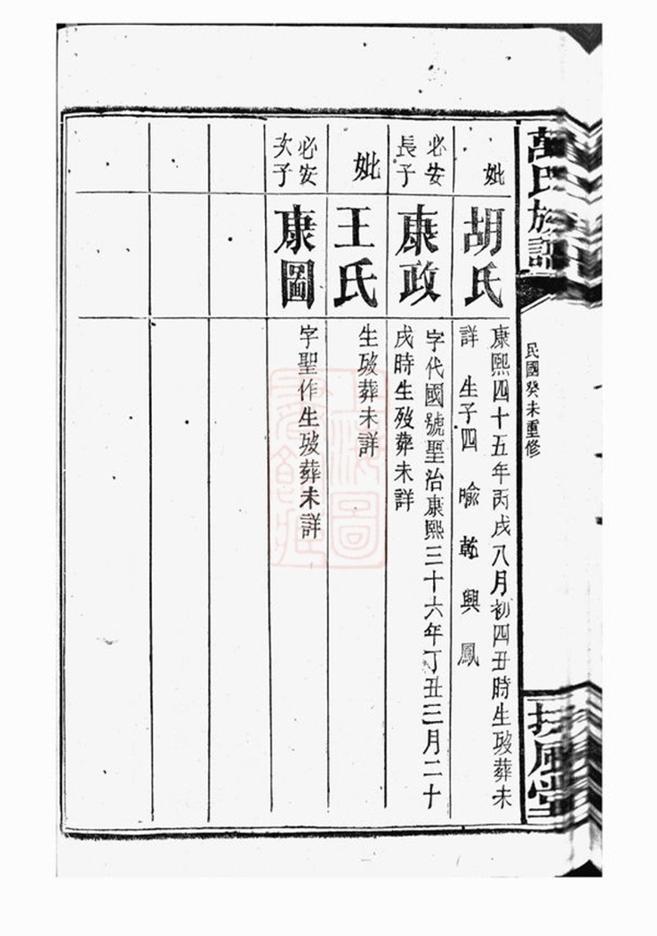 萬氏族譜
民國癸未重修
扶風堂
妣
胡氏
康熙四十五年丙戌八月初四丑時生歿葬未
詳 生子四 喻乾興鳳
必安
長子
康政
字代國號聖治康熙三十六年丁丑三月二十
戌時生歿葬未詳
妣
王氏
生歿葬未詳
必安
次子
康圖
字聖作生歿葬未詳